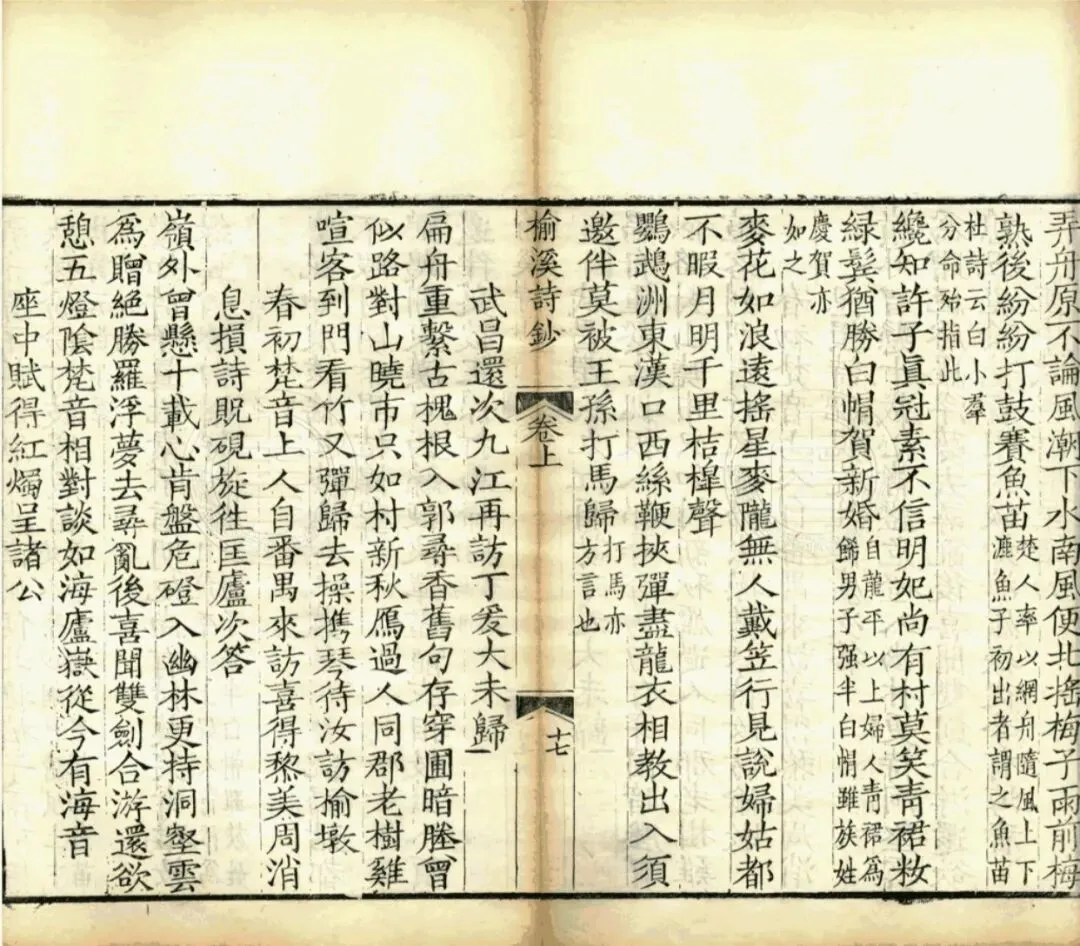 弄舟原不論風潮下水南風便北搖梅子雨前梅
熟後紛紛打鼓賽魚苗楚人率以網舟隨風上下
漉魚子初出者謂之魚苗
杜詩云白小羣
分命殆指此
纔知許子眞冠素不信明妃尚有村莫笑靑裙敉
緑鬂猶勝白帢賀新婚自龍平以上婦人靑裙爲
餙男子强半白帢雖族姓
慶賀亦
如之
麥花如浪遠搖星麥隴無人戴笠行見說婦姑都
不暇月明千里桔橰聲
鸚鵡洲東漢口西絲鞭挾彈盡龍衣相教出入須
邀伴莫被王孫打馬歸打馬亦
方言也
榆溪詩鈔 卷上 十七
武昌還次九江再訪丁爰大未歸
扁舟重繫古槐根入郭尋香舊句存穿圃暗塍曾
似路對山曉市只如村新秋鴈過人同郡老樹雞
喧客到門看竹又彈歸去操携琴待汝訪榆墩
春初梵音上人自番禺來訪喜得黎美周消
息損詩貺硯旋徃匡廬次答
嶺外曾懸十載心肯盤危磴入幽林更持洞壑雲
爲贈絕勝羅浮夢去尋亂後喜聞雙劍合游還欲
憩五燈陰梵音相對談如海廬嶽從今有海音
座中賦得紅燭呈諸公